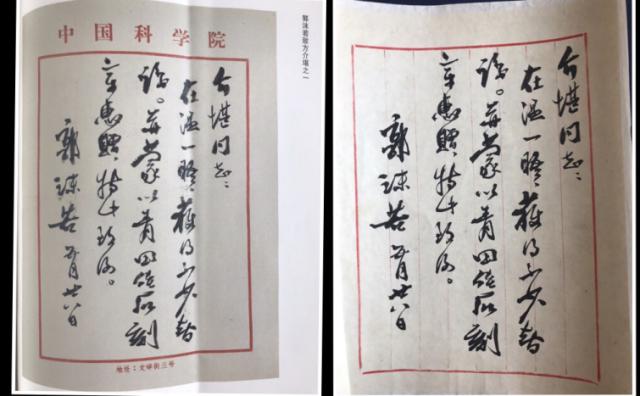 郭沫若致方介堪之一
中国科学院
介堪同志:
在温一晤,获得不少
。并蒙以青田佳石刻
章惠赠,特此致谢。
郭沫若 五月廿八日
地址:文津街三号
介堪同志:
在温一晤,获得不少
。并蒙以青田佳石刻
章惠赠,特此致谢。
郭沫若 五月廿八日